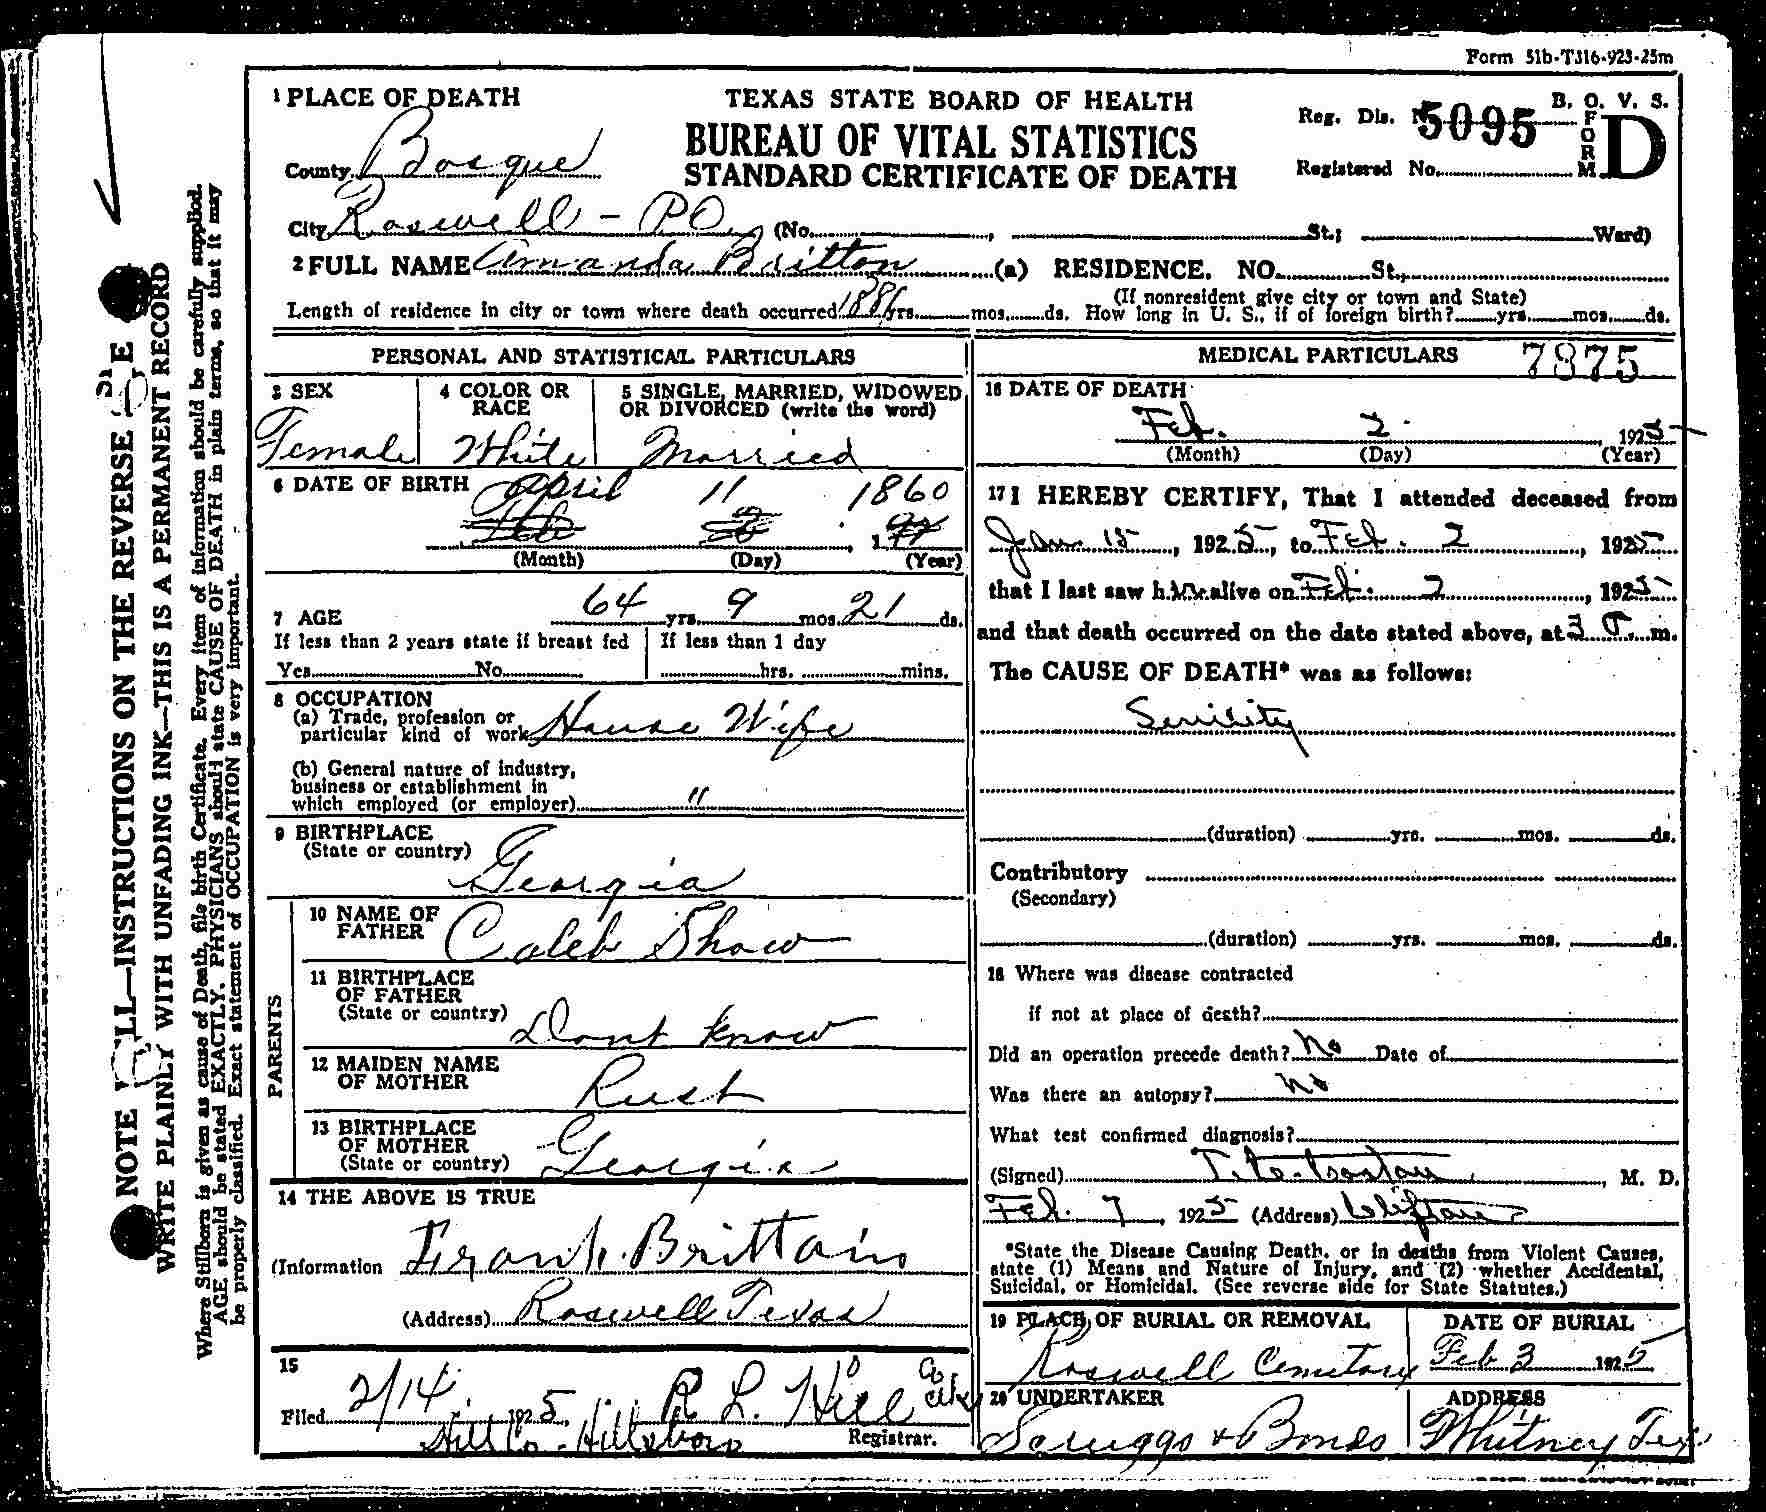 Form 51b-T316-923-25m
1 PLACE OF DEATH
TEXAS STATE BOARD OF HEALTH
BUREAU OF VITAL STATISTICS
STANDARD CERTIFICATE OF DEATH
Reg. Dis. 5095
B. O. V. S.
FORM D
Registered No.
County Bosque
City Roswell - PO (No. , St.; Ward)
2 FULL NAME Amanda Britton (a) RESIDENCE. NO. St.,
Length of residence in city or town where death occurred 1886 yrs. mos. ds.
(If nonresident give city or town and State)
How long in U. S., if of foreign birth? yrs. mos. ds.
PERSONAL AND STATISTICAL PARTICULARS
3 SEX
Female
4 COLOR OR RACE
White
5 SINGLE, MARRIED, WIDOWED
OR DIVORCED (write the word)
Married
6 DATE OF BIRTH April 11 1860
(Month) (Day) (Year)
7 AGE 64 yrs. 9 mos. 21 ds.
If less than 2 years state if breast fed
Yes No
If less than 1 day
hrs. mins.
8 OCCUPATION
(a) Trade, profession or
particular kind of work House Wife
(b) General nature of industry,
business or establishment in
which employed (or employer) "
9 BIRTHPLACE
(State or country) Georgia
PARENTS
10 NAME OF
FATHER Caleb Shaw
11 BIRTHPLACE
OF FATHER
(State or country) Dont know
12 MAIDEN NAME
OF MOTHER Rust
13 BIRTHPLACE
OF MOTHER
(State or country) Georgia
14 THE ABOVE IS TRUE
(Information Frank Brittain
(Address) Roswell Texas
15
Filed 2/14 1925 R L Hill Co Clk
Registrar.
Hill Co - Hillsboro
MEDICAL PARTICULARS 7375
16 DATE OF DEATH
Feb. 2 1925
(Month) (Day) (Year)
17 I HEREBY CERTIFY, That I attended deceased from
Jan 15, 1925, to Feb. 2, 1925
that I last saw her alive on Feb. 2, 1925
and that death occurred on the date stated above, at 3 P. m.
The CAUSE OF DEATH* was as follows:
Senility
(duration) yrs. mos. ds.
Contributory
(Secondary)
(duration) yrs. mos. ds.
18 Where was disease contracted
if not at place of death?
Did an operation precede death? No Date of
Was there an autopsy? No
What test confirmed diagnosis?
(Signed) , M. D.
Feb. 7, 1925 (Address) Clifton
*State the Disease Causing Death, or in deaths from Violent Causes,
state (1) Means and Nature of Injury, and (2) whether Accidental,
Suicidal, or Homicidal. (See reverse side for State Statutes.)
19 PLACE OF BURIAL OR REMOVAL
Roswell Cemetary
DATE OF BURIAL
Feb 3 1925
20 UNDERTAKER
Scruggs & Bonds
ADDRESS
Whitney Tex
NOTE WELL—INSTRUCTIONS ON THE REVERSE SIDE
WRITE PLAINLY WITH UNFADING INK—THIS IS A PERMANENT RECORD
Where Stillborn is given as cause of Death, file birth Certificate. Every item of information should be carefully supplied.
AGE should be stated EXACTLY. PHYSICIANS should state CAUSE OF DEATH in plain terms, so that it may
be properly classified. Exact statement of OCCUPATION is very important.